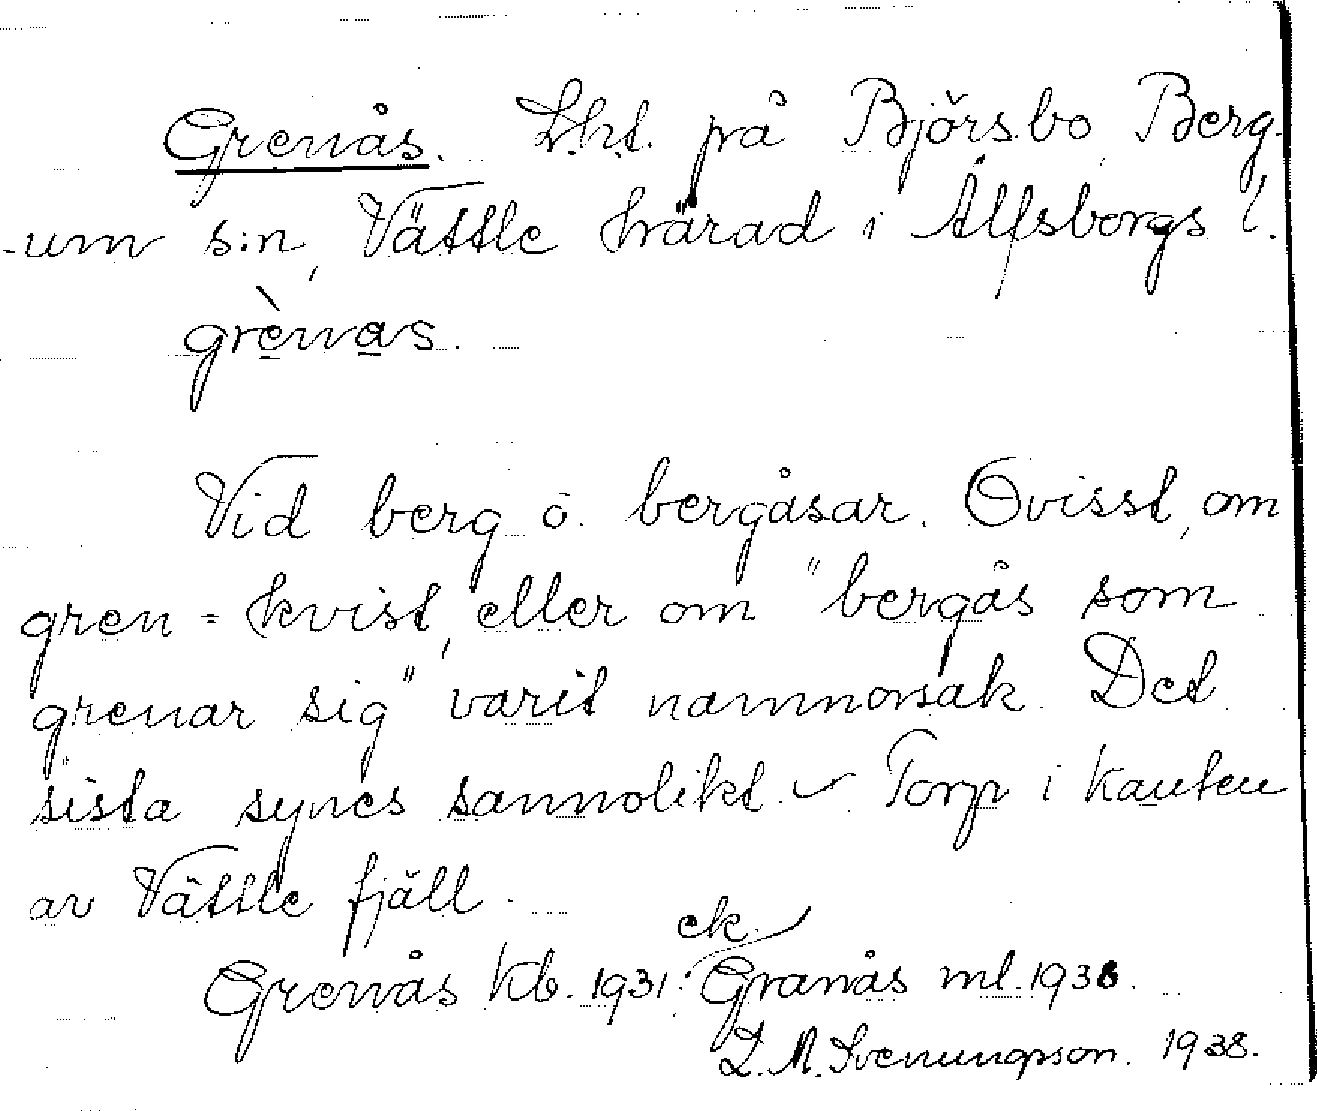 Grenås. Lht. på Björsbo, Berg-
-um s:n, Vättle härad i Älfsborgs l.
grènas.
Vid berg o. bergåsar. Ovisst, om
gren = kvist, eller om "bergås som
grenar sig" varit namnorsak. Det
sista synes sannolikt. Torp i kanten
av Vättle fjäll.
ek.
Grenås kb. 1931. Granås ml. 1938.
L. M. Svenungsson. 1938.